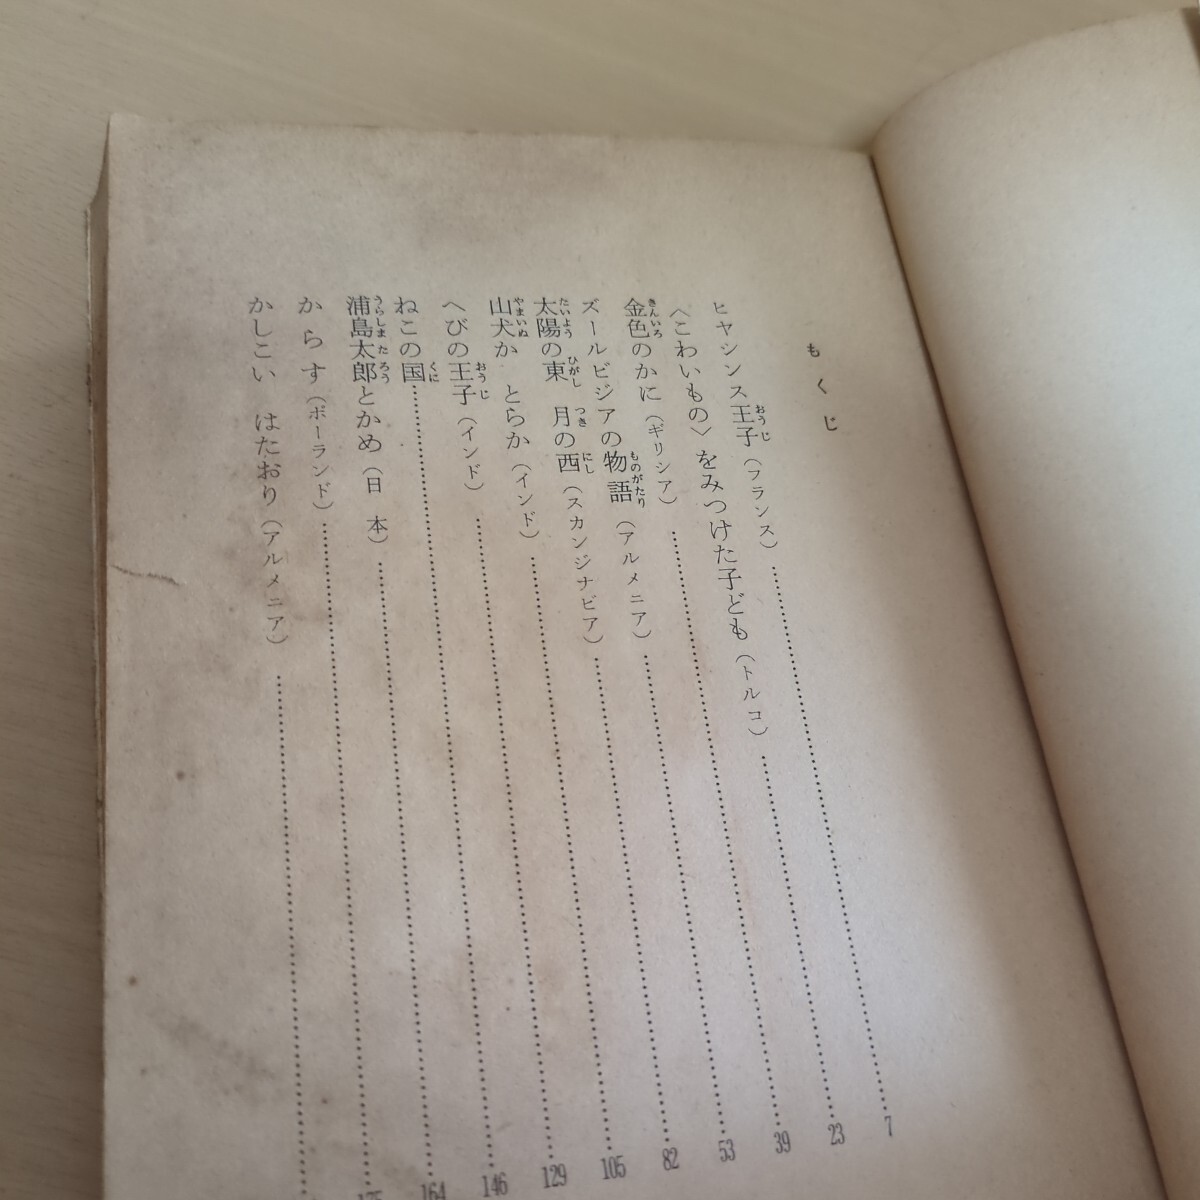 もくじ
ヒヤシンス王子(フランス)……7
〈こわいもの〉をみつけた子ども(トルコ)……23
金色のかに(ギリシア)……39
ズールビジアの物語(アルメニア)……53
太陽の東 月の西(スカンジナビア)……82
山犬か とらか(インド)……105
へびの王子(インド)……129
ねこの国……146
浦島太郎とかめ(日 本)……164
からす(ポーランド)……175
かしこい はたおり(アルメニア)……